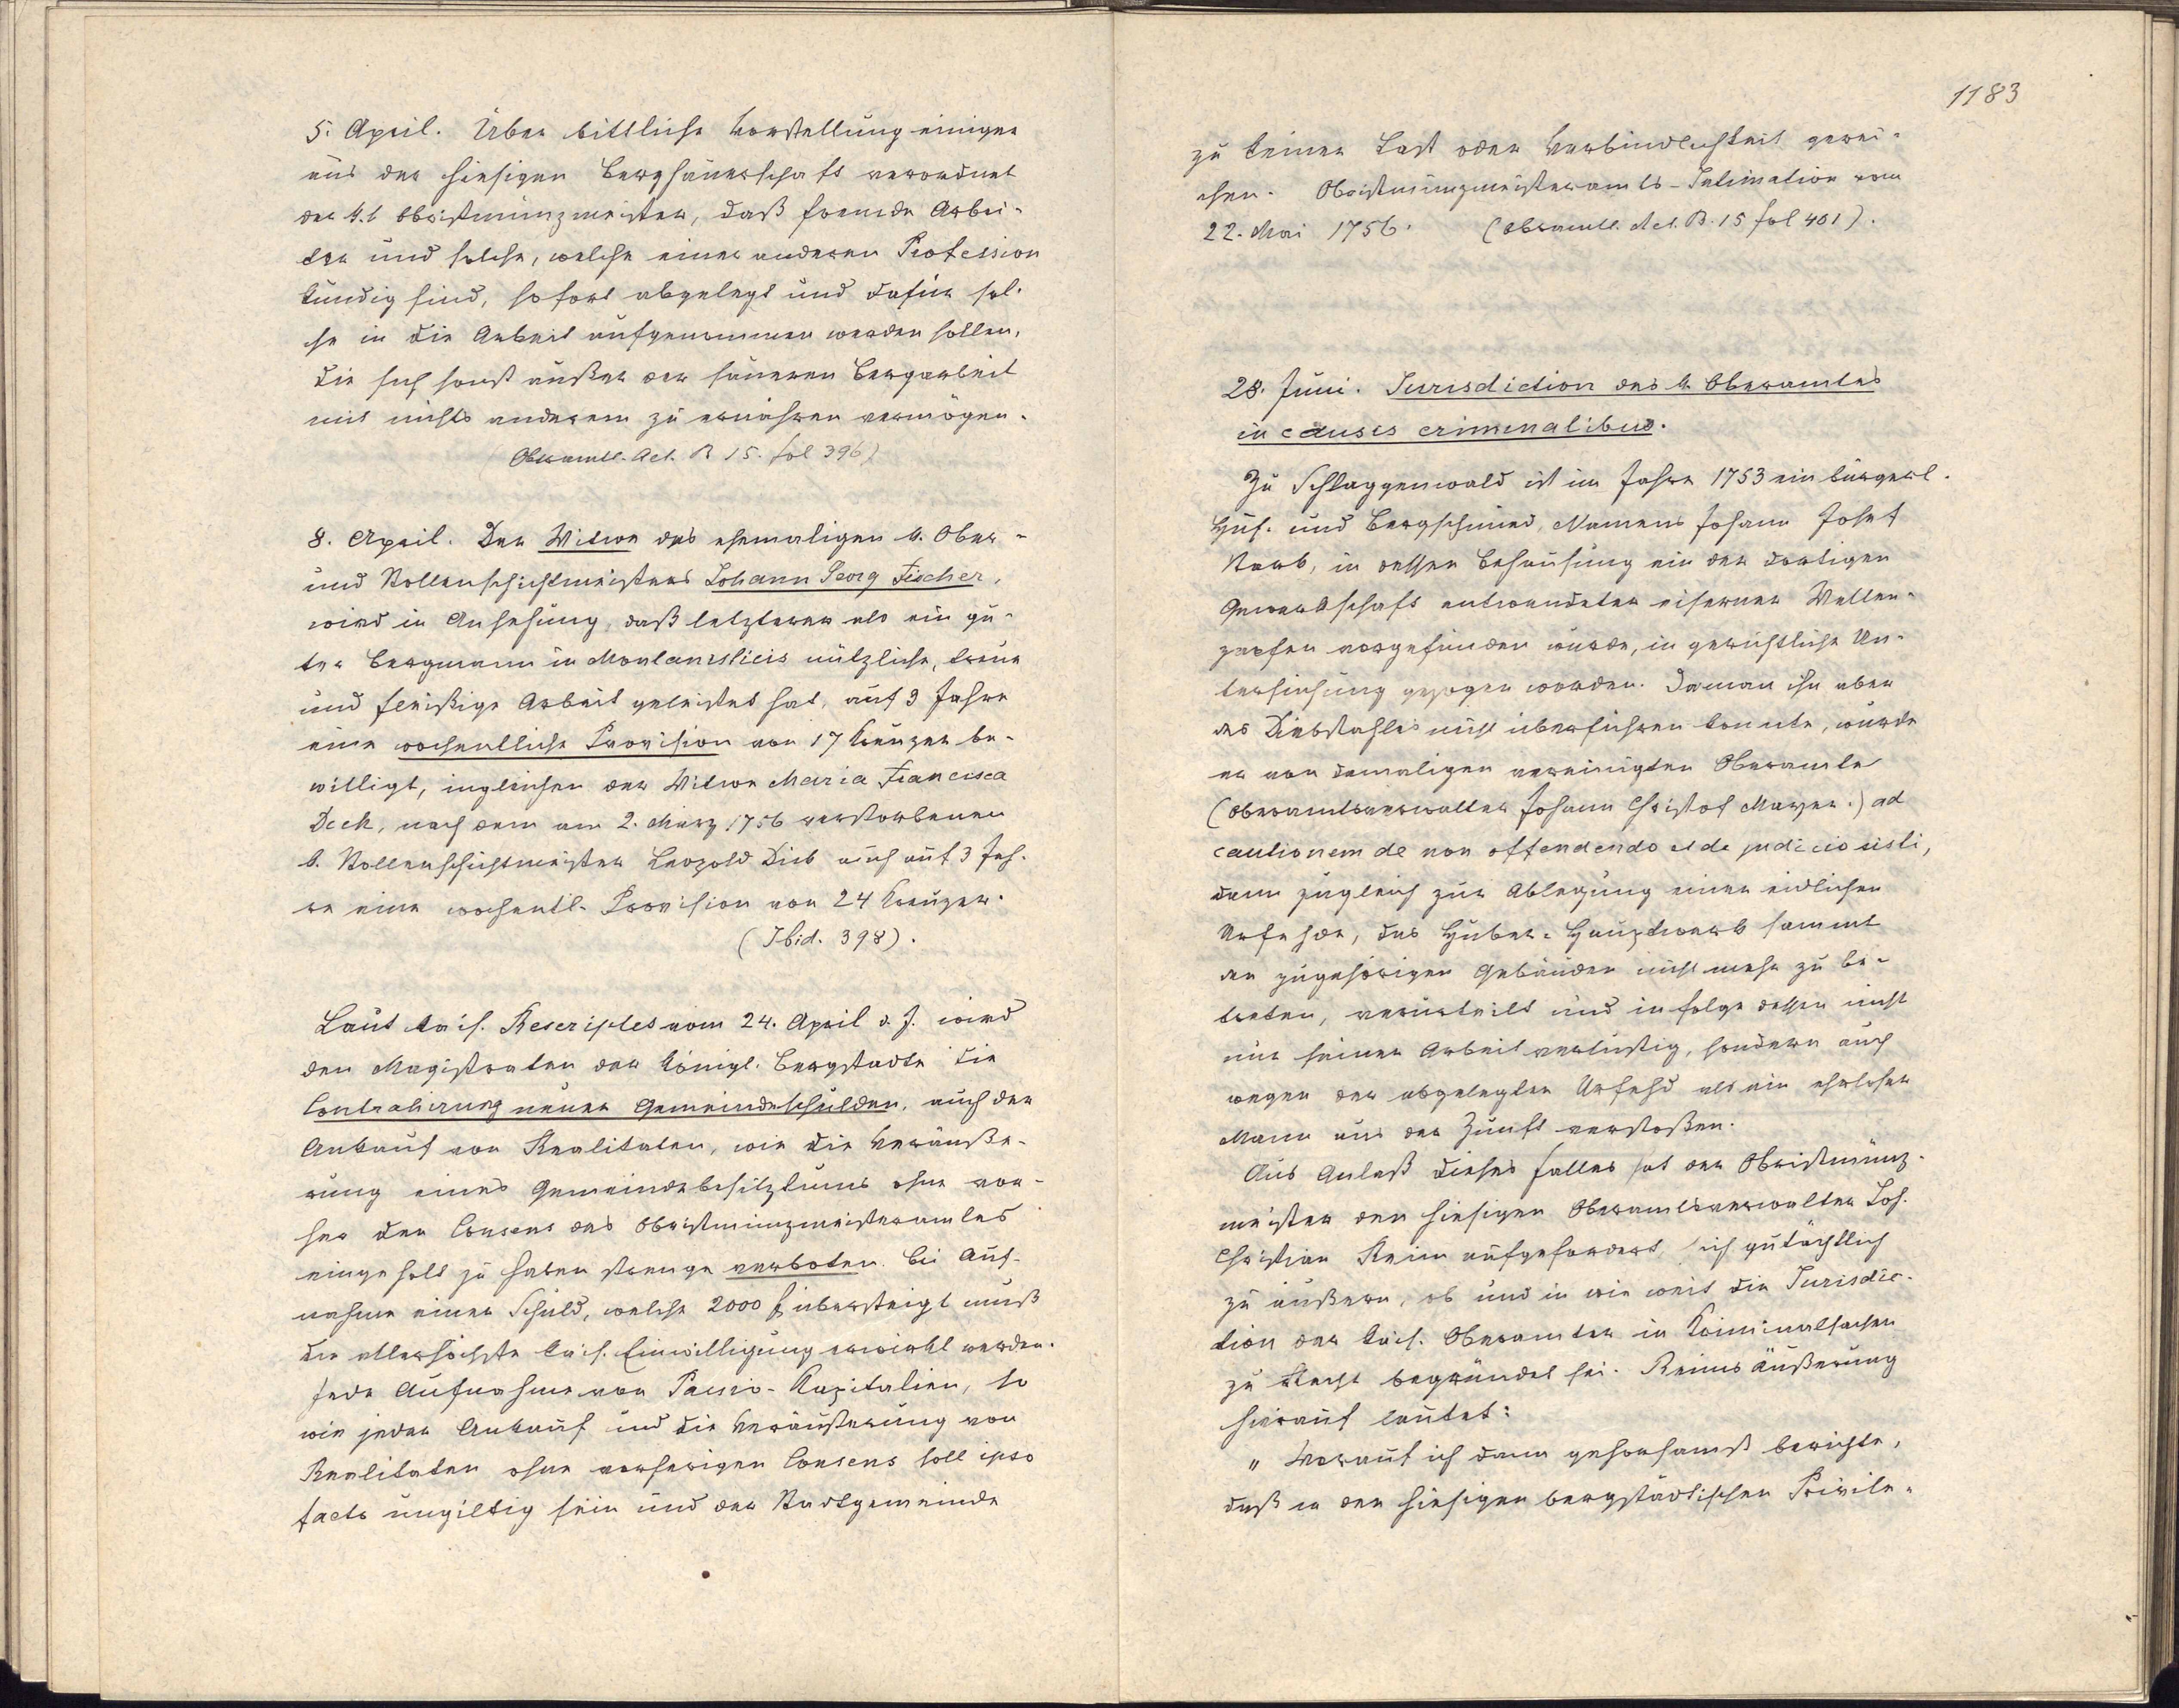 5. April. Über bittliche Vorstellung einiger
aus der hiesigen Berghäuerschaft verordnet
der k. k. Obristmünzmeister, daß fremde Arbei-
ter und solche, welche einer anderen Profession
kundig sind, sofort abgelegt und dafür sol-
che in die Arbeit aufgenommen werden sollen,
die sich sonst außer der säueren Bergarbeit
mit nichts anderem zu ernähren vermögen.
(Oberamtl. Act. B 15. fol 396)
8. April. Der Witwe des ehemaligen k. Ober-
und Stollenschichtmeisters Johann Georg Fischer,
wird in Ansehung, daß letzterer als ein gu-
ter Bergmann in Montanisticis nützliche, treue
und fleißige Arbeit geleistet hat, auf 3 Jahre
eine wochentliche Provision von 17 Kreuzer be-
willigt, ingleichen der Witwe Maria Francisca
Deck, nach dem am 2. März 1756 verstorbenen
k. Stollenschichtmeister Leopold Dick auch auf 3 Jah-
re eine wochentl. Provision von 24 Kreuzer.
(Ibid. 398).
Laut kais. Rescriptes vom 24. April d. J. wird
den Magistraten der königl. Bergstädte die
Contrahirung neuer Gemeindeschulden, auch der
Ankauf von Realitäten, wie die Veräuße-
rung eines Gemeindebesitztums ohne vor-
her den Consens des Obristmünzmeisteramtes
eingeholt zu haben strenge verboten. Bei Auf-
nahme einer Schuld, welche 2000 f übersteigt muß
die allerhöchste kais. Einwilligung erwirkt werden.
Jede Aufnahme von Passiv-Kapitalien, so
wie jeder Ankauf und die Veräußerung von
Realitäten ohne vorherigen Consens soll ipso
facto ungiltig sein und der Stadtgemeinde
1183
zu keiner Last oder Verbindlichkeit gerei-
chen. Obristmünzmeisteramts-Intimation vom
22. Mai 1756. (Oberamtl. Act. B. 15 fol 401).
28. Juni. Jurisdiction des k. Oberamtes
in causis criminalibus.
Zu Schlaggenwald ist im Jahre 1753 ein bürgerl.
Huf- und Bergschmied, Namens Johann Josef
Stark, in dessen Behausung ein der dortigen
Gewerkschaft entwendeter eiserner Wellen-
zapfen vorgefunden wurde, in gerichtliche Un-
tersuchung gezogen worden. Da man ihn aber
des Diebstahles nicht überführen konnte, wurde
er vom damaligen vereinigten Oberamte
(Oberamtsverwalter Johann Christof Mayer.) ad
cautionem de non offendendo et de judicio sisti,
dann zugleich zur Ablegung einer eidlichen
Urfehde, das Huber-Hauptwerk sammt
den zugehörigen Gebäuden nicht mehr zu be-
treten, verurteilt und infolge dessen nicht
nur seiner Arbeit verlustig, sondern auch
wegen der abgelegten Urfehd als ein ehrloser
Mann aus der Zunft verstoßen.
Aus Anlaß dieses Falles hat der Obristmünz-
meister den hiesigen Oberamtsverwalter Joh.
Christian Reim aufgefordert, sich gutächtlich
zu äußern, ob und in wie weit die Jurisdic-
tion der kais. Oberämter in Kriminalsachen
zu Recht begründet sei. Reims Äußerung
hierauf lautet:
„ Worauf ich dann gehorsamst berichte,
daß in den hiesigen bergstädtischen Privile-